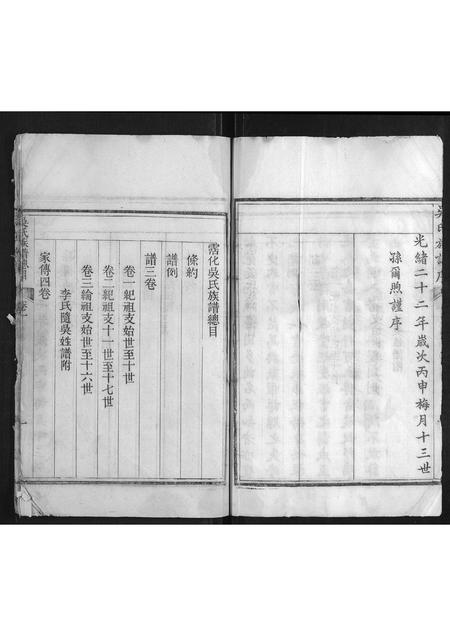 吳氏族譜序
光緒二十二年歲次丙申梅月十三世
孫爾煦謹序
霑化吳氏族譜總目
條約
譜例
譜三卷
卷一紀祖支始世至十世
卷二紀祖支十一世至十七世
卷三綸祖支始世至十六世
李氏隨吳姓譜附
家傳四卷
吳氏族譜總目
卷一